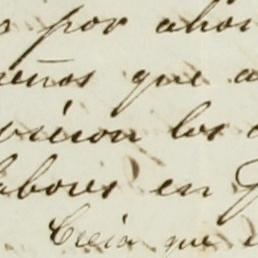 por ahor
eños que a
vieron los
labores en
Creia que